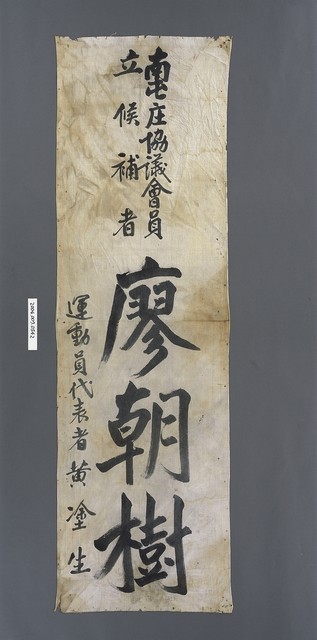 南屯庄協議會員
立候補者
廖朝樹
運動員代表者黄塗生